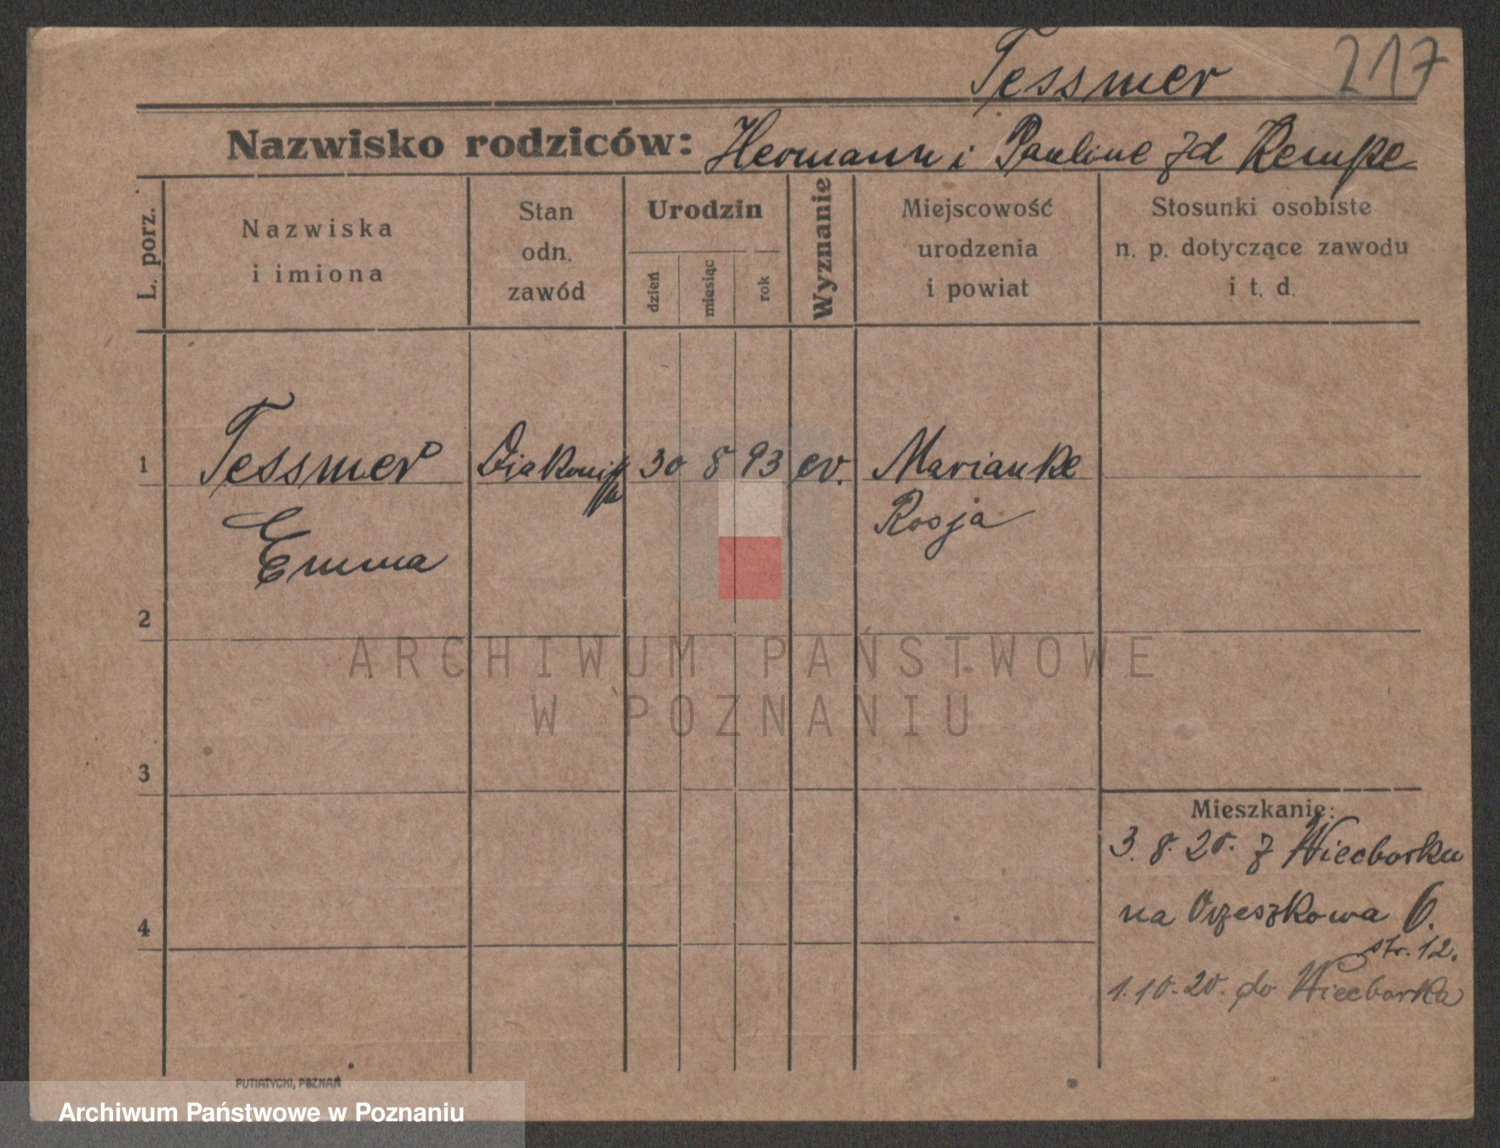 Tessmer 217
Nazwisko rodziców: Hermann i Pauline zd Kempe
L. porz.
Nazwiska
i imiona
Stan
odn.
zawód
Urodzin
dzień
miesiąc
rok
Wyznanie
Miejscowość
urodzenia
i powiat
Stosunki osobiste
n. p. dotyczące zawodu
i t. d.
1 Tessmer Diakonissa 30 8 93 ev. Marianke
Emma Rosja
2
3
4
Mieszkanie:
3. 8. 20. z Wiecborku
na Orzeszkowa 6.
str. 12.
1. 10. 20. do Wiecborka
PUTIATYCKI, POZNAŃ
ARCHIWUM PAŃSTWOWE
W POZNANIU
Archiwum Państwowe w Poznaniu